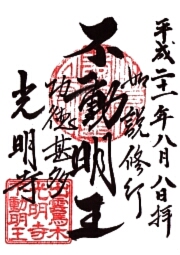 平成二十一年八月八日拝
如説修行
不動明王
功徳甚多
光明寺
鷹木
光明寺
不動明王